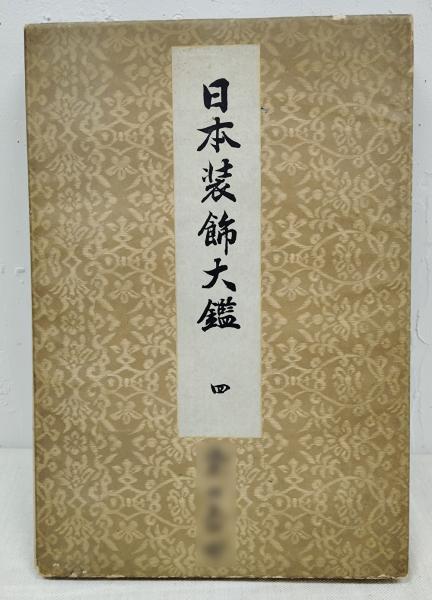 日本装飾大鑑
四